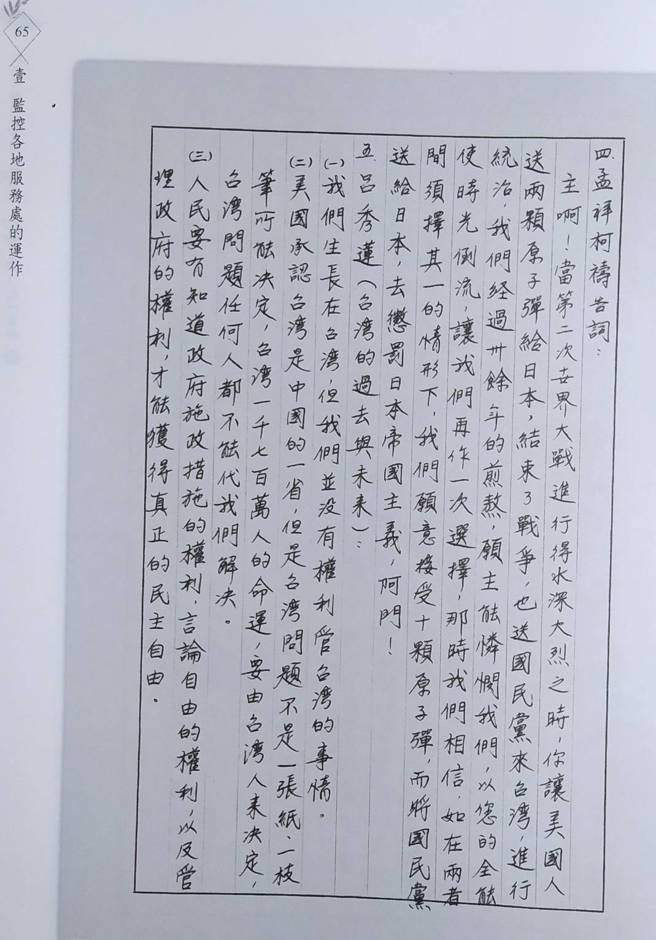 65
壹 監控各地服務處的運作
四、孟祥柯禱告詞：
主啊！當第二次世界大戰進行得水深火烈之時，你讓美國人
送兩顆原子彈給日本，結束了戰爭，也送國民黨來台灣，進行
統治，我們經過卅餘年的煎熬，願主能憐憫我們，以您的全能
使時光倒流，讓我們再作一次選擇，那時我們相信如在兩者
間須擇其一的情形下，我們願意接受十顆原子彈，而將國民黨
送給日本，去懲罰日本帝國主義，阿門！
五、呂秀蓮（台灣的過去與未來）：
㈠我們生長在台灣，但我們並沒有權利管台灣的事情。
㈡美國承認台灣是中國的一省，但是台灣問題不是一張紙、一枝
筆所能決定，台灣一千七百萬人的命運，要由台灣人來決定，
台灣問題任何人都不能代我們解決。
㈢人民要有知道政府施政措施的權利，言論自由的權利，以及管
理政府的權利，才能獲得真正的民主自由。